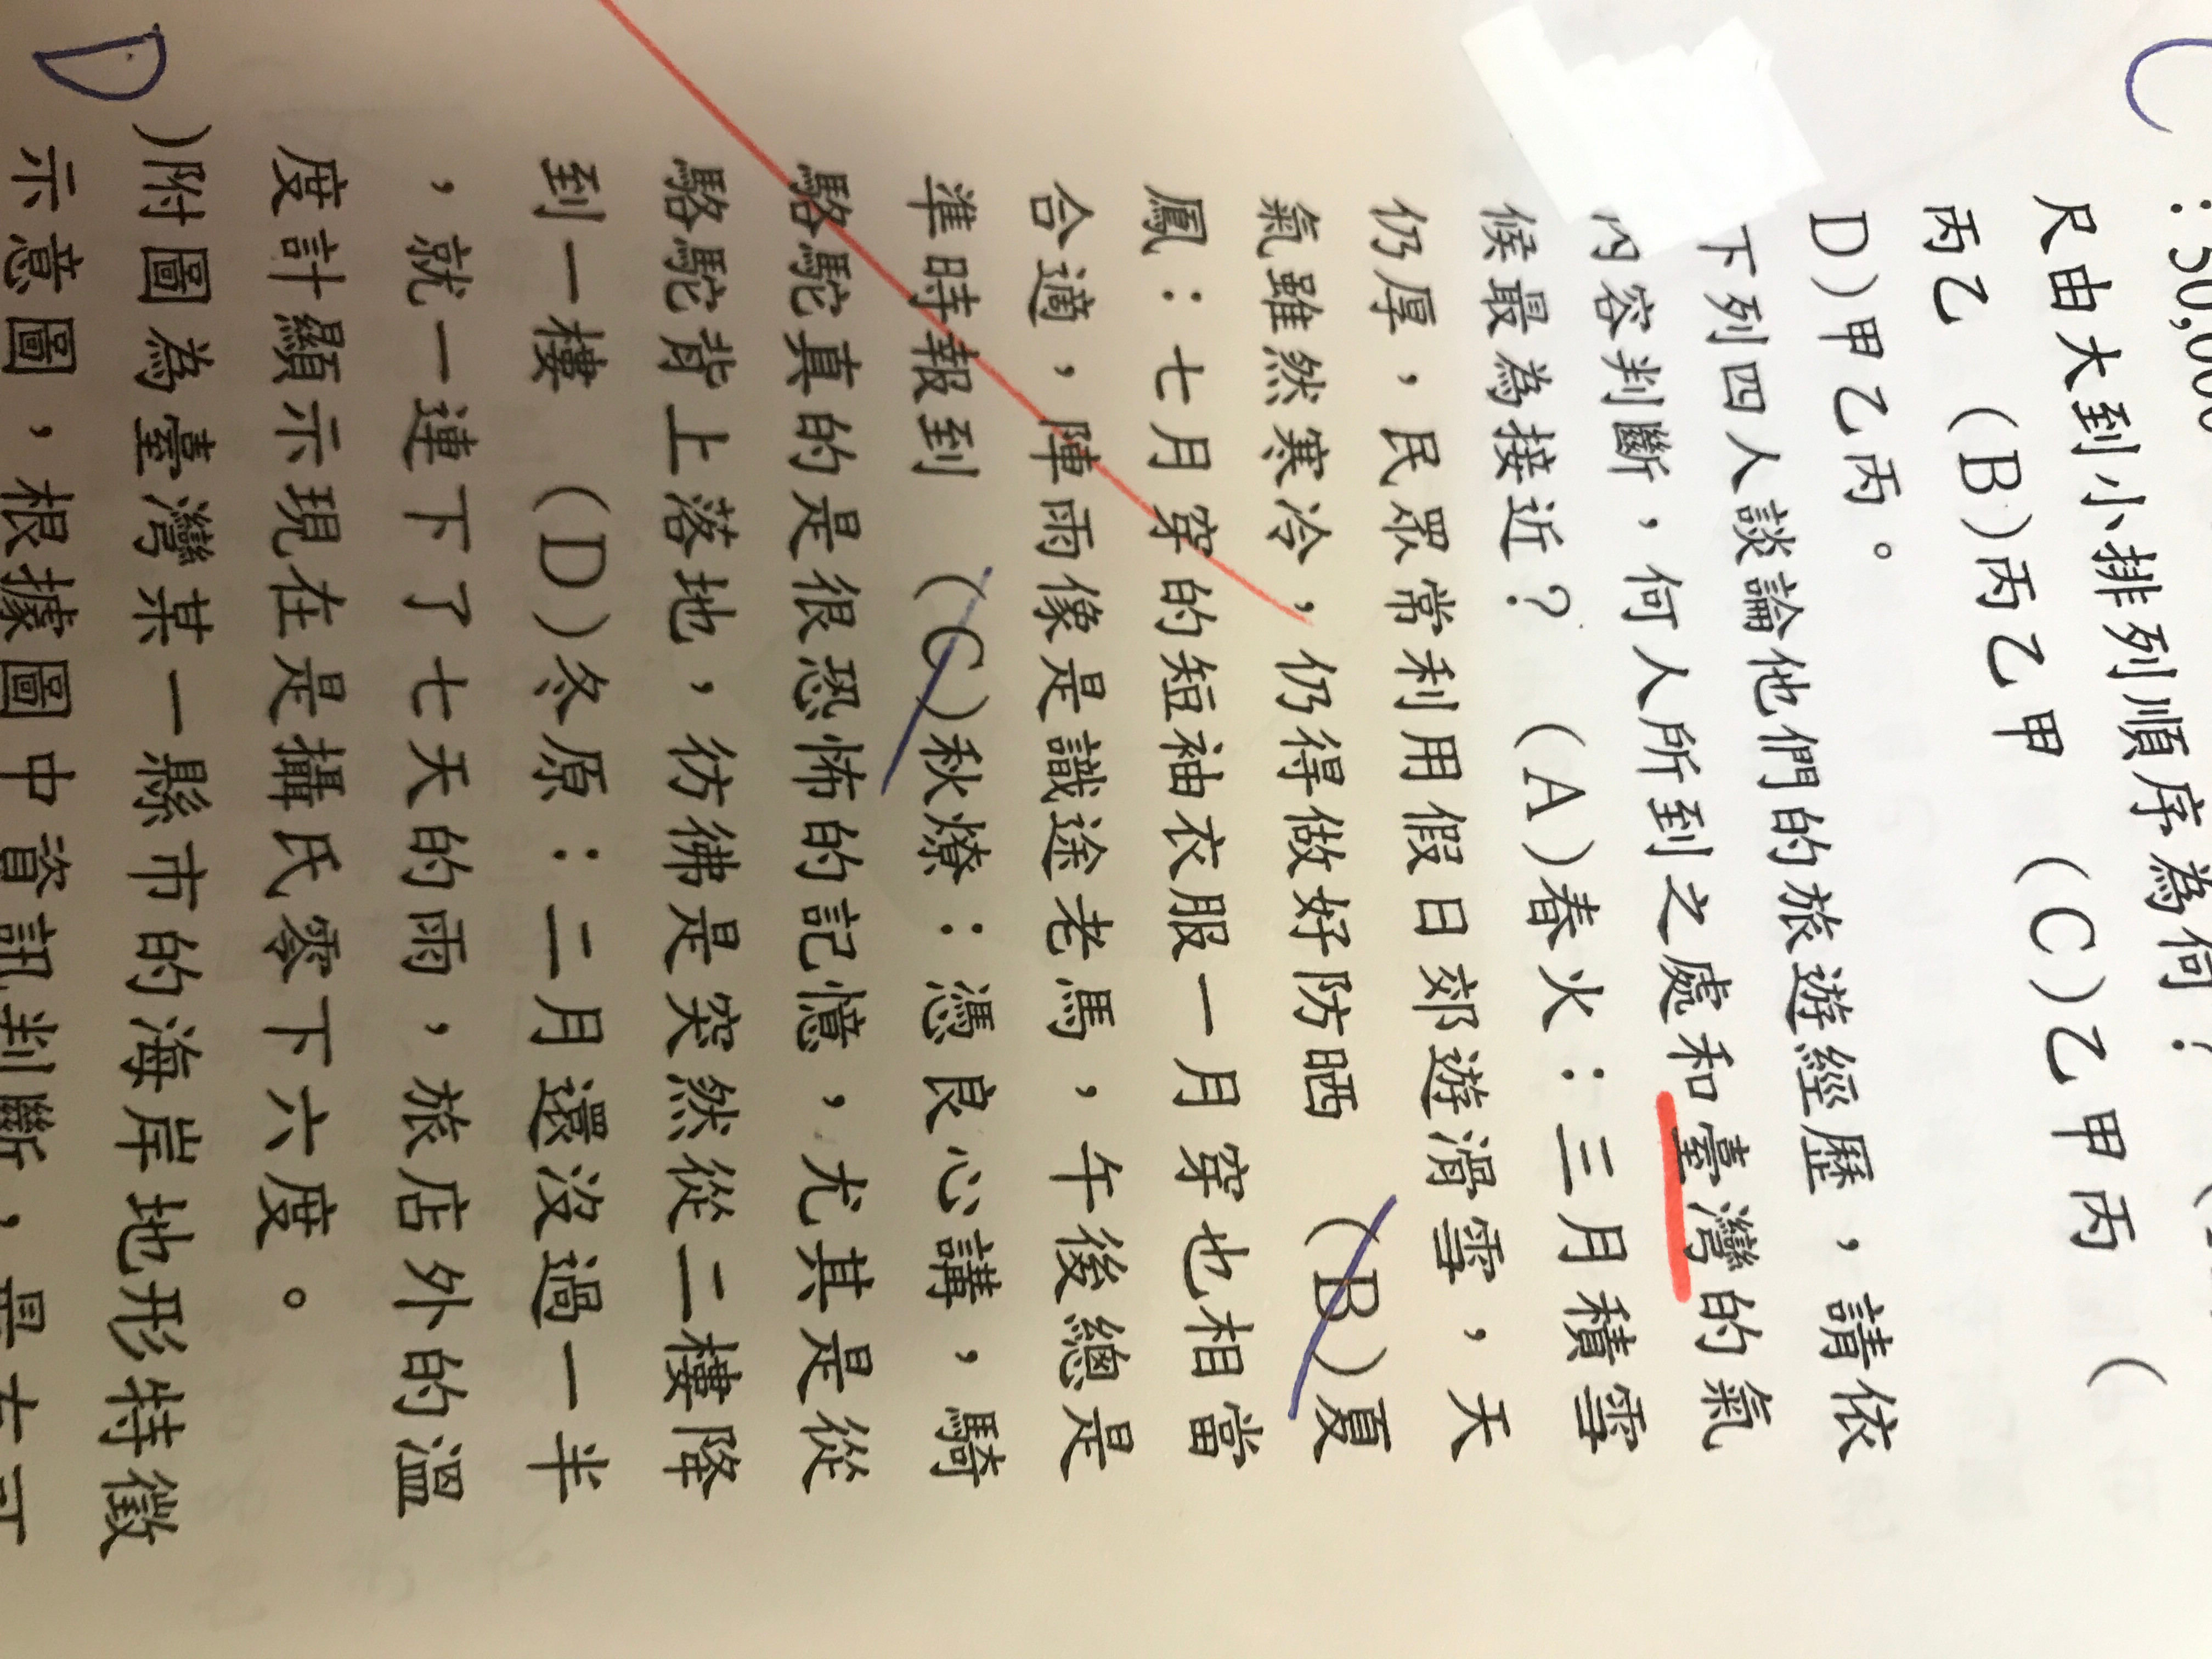 ：50,000
尺由大到小排列順序為何？
丙乙 (B)丙乙甲 (C)乙甲丙 (
D)甲乙丙。
下列四人談論他們的旅遊經歷，請依
內容判斷，何人所到之處和臺灣的氣
候最為接近？ (A)春火：三月積雪
仍厚，民眾常利用假日郊遊滑雪，天
氣雖然寒冷，仍得做好防晒 (B)夏
鳳：七月穿的短袖衣服一月穿也相當
合適，陣雨像是識途老馬，午後總是
準時報到 (C)秋燎：憑良心講，騎
駱駝真的是很恐怖的記憶，尤其是從
駱駝背上落地，彷彿是突然從二樓降
到一樓 (D)冬原：二月還沒過一半
，就一連下了七天的雨，旅店外的溫
度計顯示現在是攝氏零下六度。
D )附圖為臺灣某一縣市的海岸地形特徵
示意圖，根據圖中資訊判斷，最